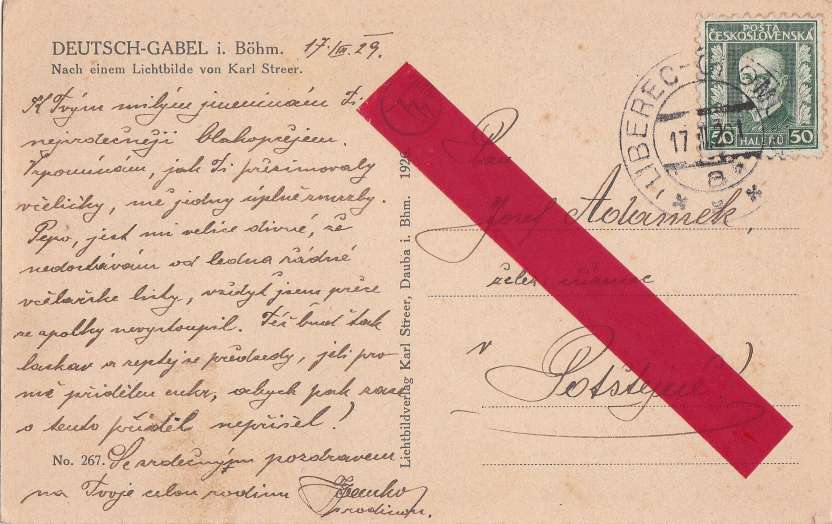 DEUTSCH-GABEL i. Böhm. 17./III. 29.
Nach einem Lichtbilde von Karl Streer.
K Tvým milým jmeninám Ti
nejsrdečněji blahopřejem.
Vzpomínám, jak Ti přezimovaly
včeličky, mé jedny úplně zmrzly.
Pepo, jest mi velice divné, že
nedostávám od ledna řádné
včelařské listy, vždyť jsem přece
ze spolku nevystoupil. Též buď tak
laskav a zeptej se předsedy, jeli pro
mě přidělen cukr, abych pak zase
o tento příděl nepřišel!
No. 267. Se srdečným pozdravem
na Tvoje celou rodinu
rodinou.
Lichtbildverlag Karl Streer, Dauba i. Bhm. 192
POŠTA
ČESKOSLOVENSKA
50 HALÉŘŮ 50
LIBEREC-
17.
Pan
Josef Adámek,
želez.
v